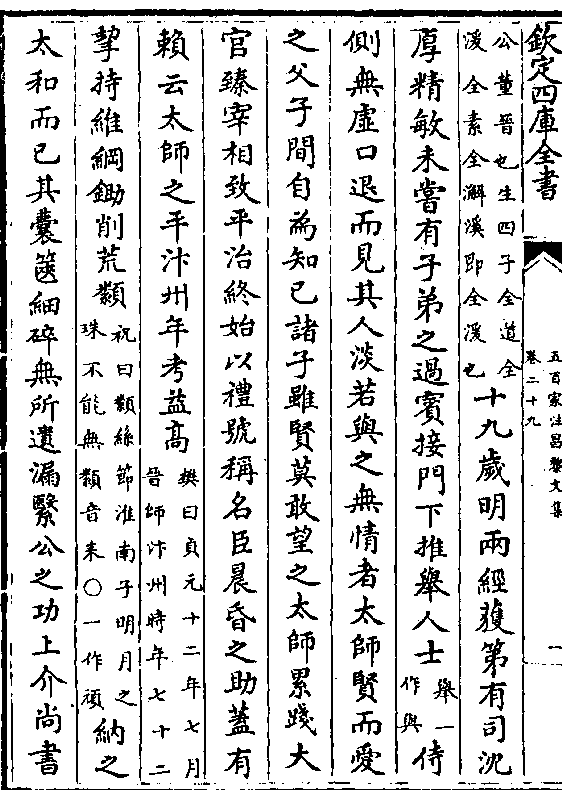 欽定四庫全書
五百家注昌黎文集
卷二十九
一
公董晉也生四子全道全
溪全素全澥溪即全溪也
十九歲明兩經獲第有司沈
厚精敏未嘗有子弟之過賓接門下推舉人士
舉一
作與
侍
側無虛口退而見其人淡若與之無情者太師賢而愛
之父子間自為知己諸子雖賢莫敢望之太師累踐大
官臻宰相致平治終始以禮號稱名臣晨昏之助蓋有
賴云太師之平汴州年考益髙
樊曰貞元十二年七月
晉師汴州時年七十二
挈持維綱鋤削荒纇
祝曰纇絲節淮南子明月之
珠不能無纇音耒〇一作頑
納之
太和而已其囊篋細碎無所遺漏繄公之功上介尚書